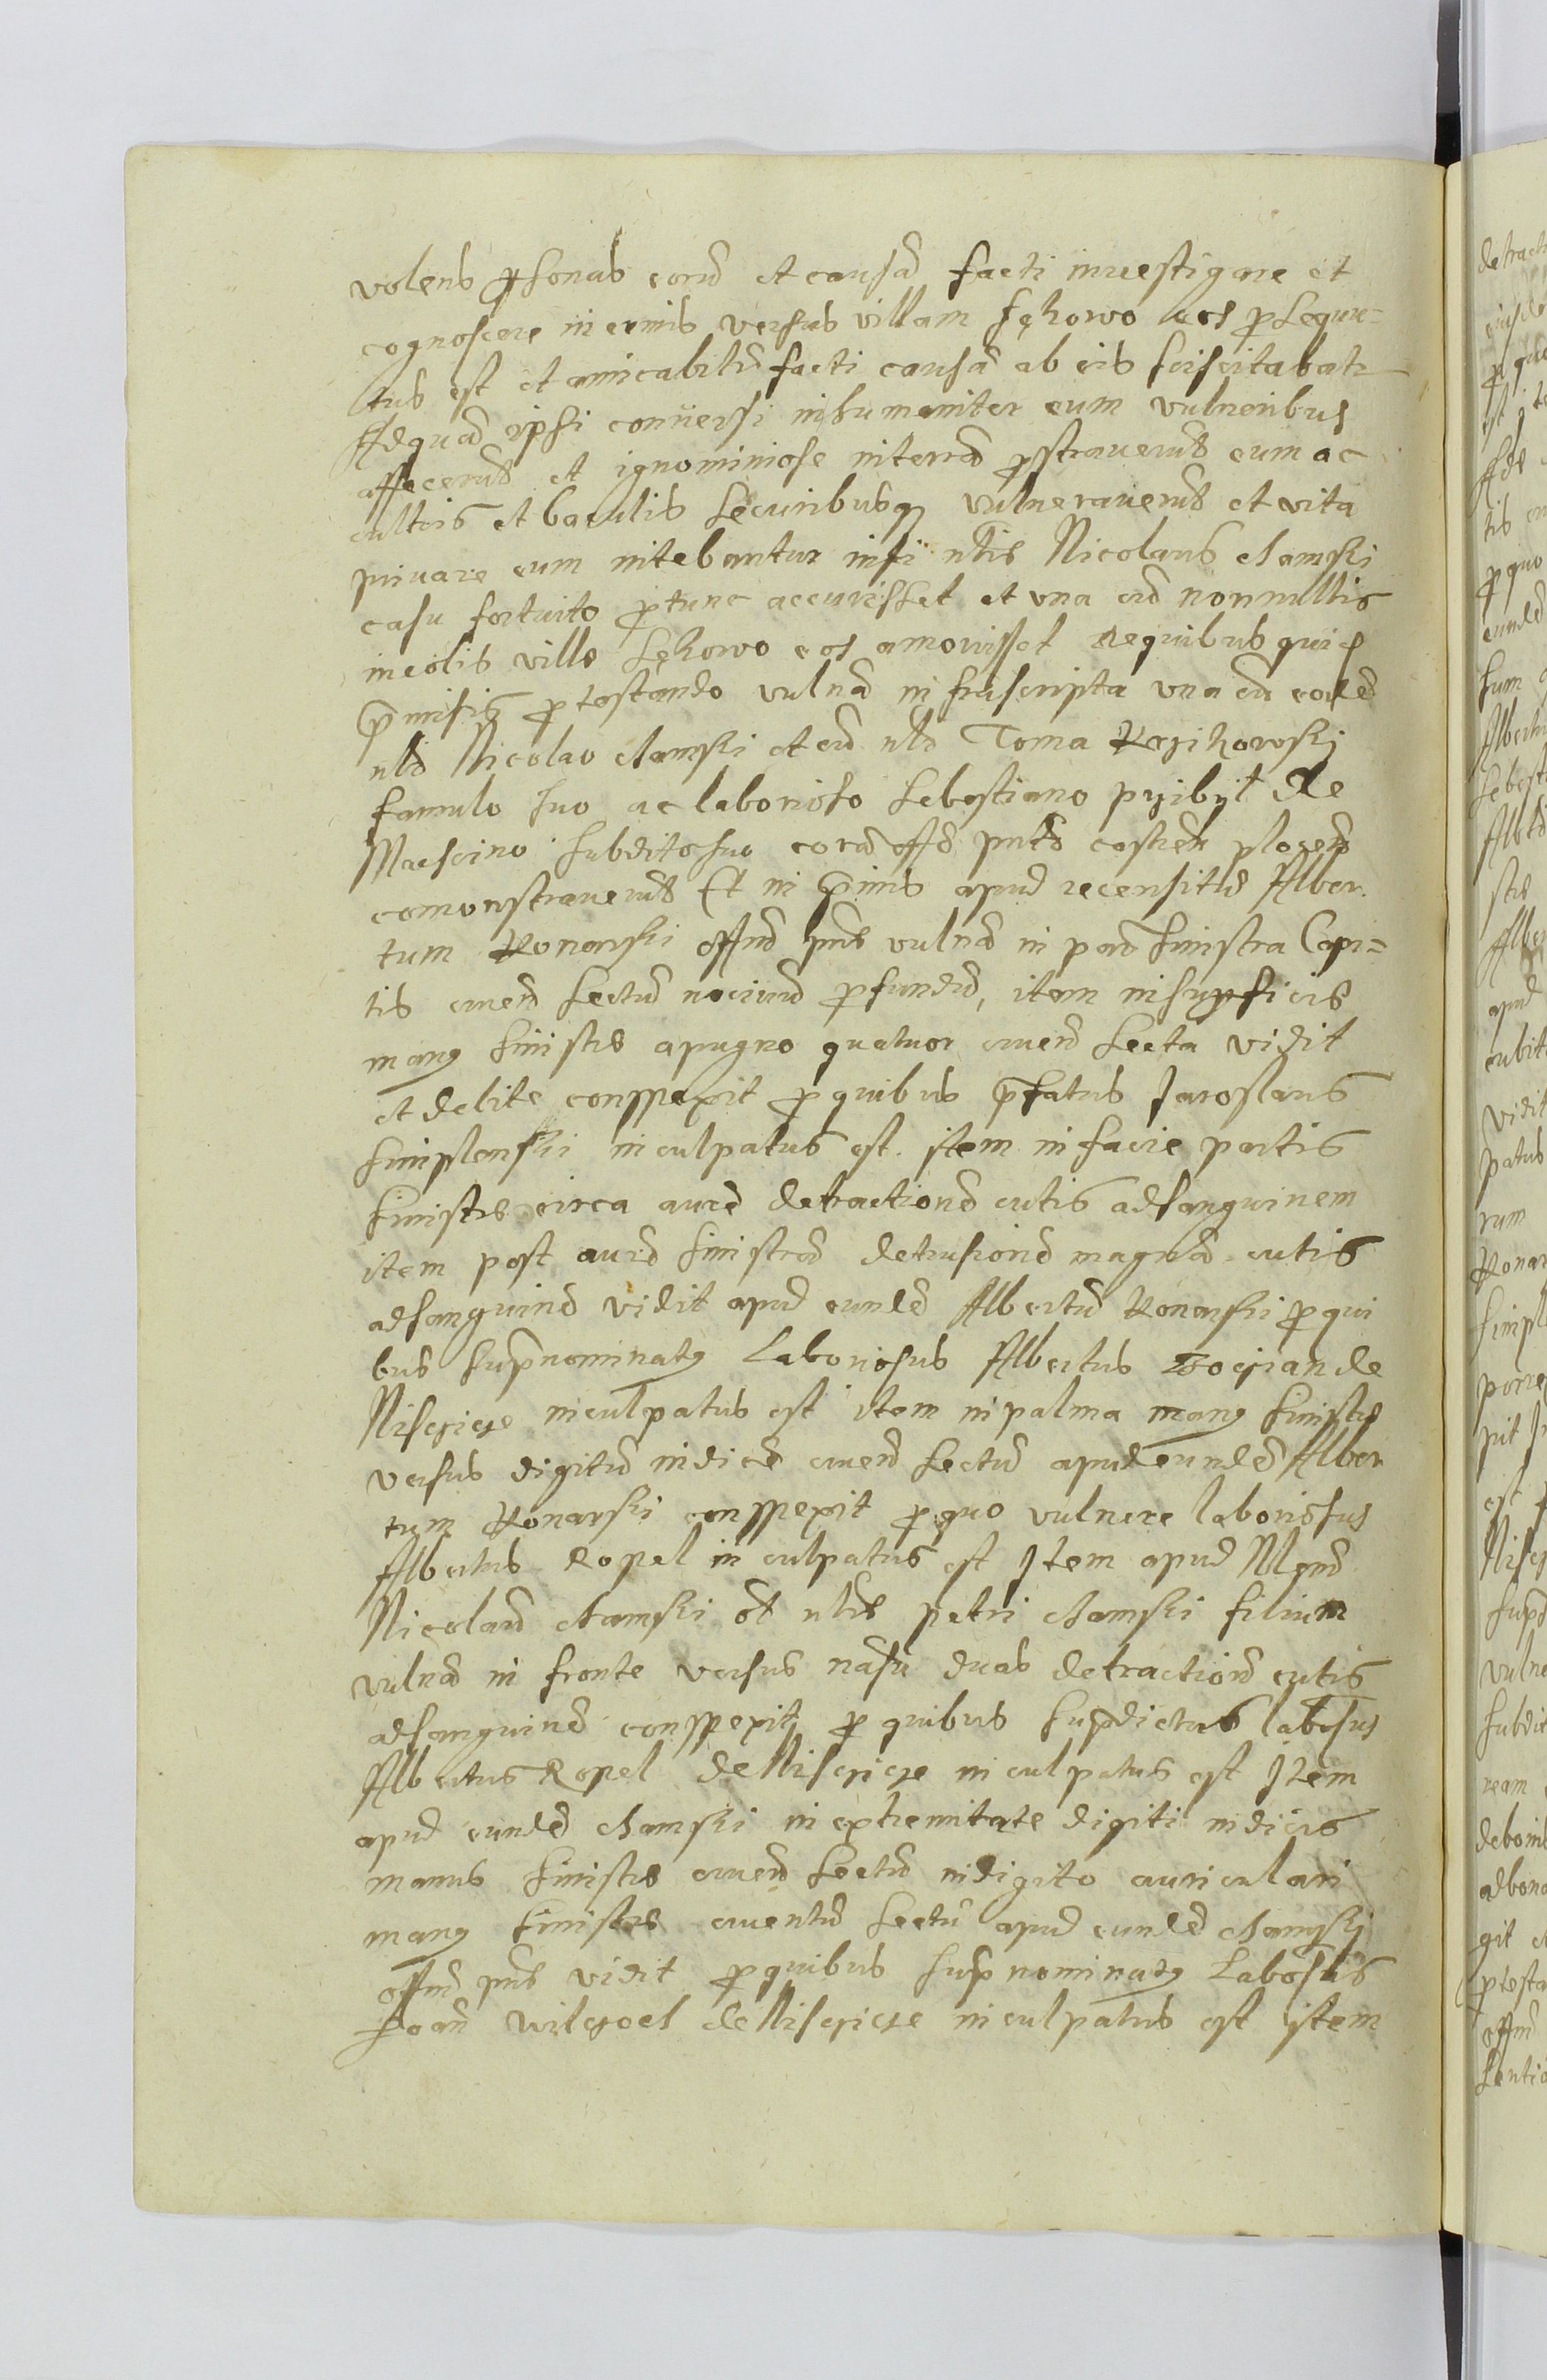 volens personas eorū et causā facti investigare et
cognoscere inermis versus villam Sękowo eos prosequu=
tus est et amicabiliter facti causā ab eis sciscitabatr
Adquā ipsi conversi inhumaniter eum vulneribus
affecerūt et ignominiose interrā prostraverūt eum ac
cultris et baculis securibusq vulneraverūt et vita
privare eum nitebantur nisi nblis Nicolaus Chamski
casu fortuito protunc accurrisset et una cū nonnullis
incolis ville Sękowo eos amovisset Dequibus quidē
premissis protestando vulnā infrascripta una cū eodē
nbli Nicolao Chamski et cū nbli Toma
famulo suo ac laborioso Sebastiano przibyl de
subdito suo corā offo pnti castreń plocensi
comonstraverūt Et in primis apud recensitū Alber
tum Konarski offm pns vulnā in parte sinistra Capi=
tis cruentū sectū nocivū profundū, item insuperficie
manus sinistre apugno quatuor cruenta secta vidit
et debite conspexit pro quibus prefatus Jaroslaus
Siniplenski inculpatus est. item infacie partis
sinistre circa aurē detractionē cutis adsanguinem
item post aurē sinistrā detrusionē magnā cutis
adsanguinē vidit apud eundē Albertū Konarski pro qui
bus supranominatus Laboriosus Albertus Boczian de
inculpatus est item inpalma manus sinistre
versus digitū indicē cruentū sectū apud eundē Alber
tum Konarski conspexit pro quo vulnere laboriosus
Albertus Kopel inculpatus est Item apud Nblem
Nicolaū Chamski olim nblis Petri Chamski filium
vulnā in fronte versus nasū duas detractiones cutis
adsanguinē conspexit pro quibus supradictus labosus
Albertus Kopel de inculpatus est Item
apud eundē Chamski in extremitate digiti indicis
manus sinistre cruentū sectū indigito auriculari
manus sinistre cruentū sectū apud eundē Chamski
offm pns vidit pro quibus supranominatus Labosus
Joań de inculpatus est item